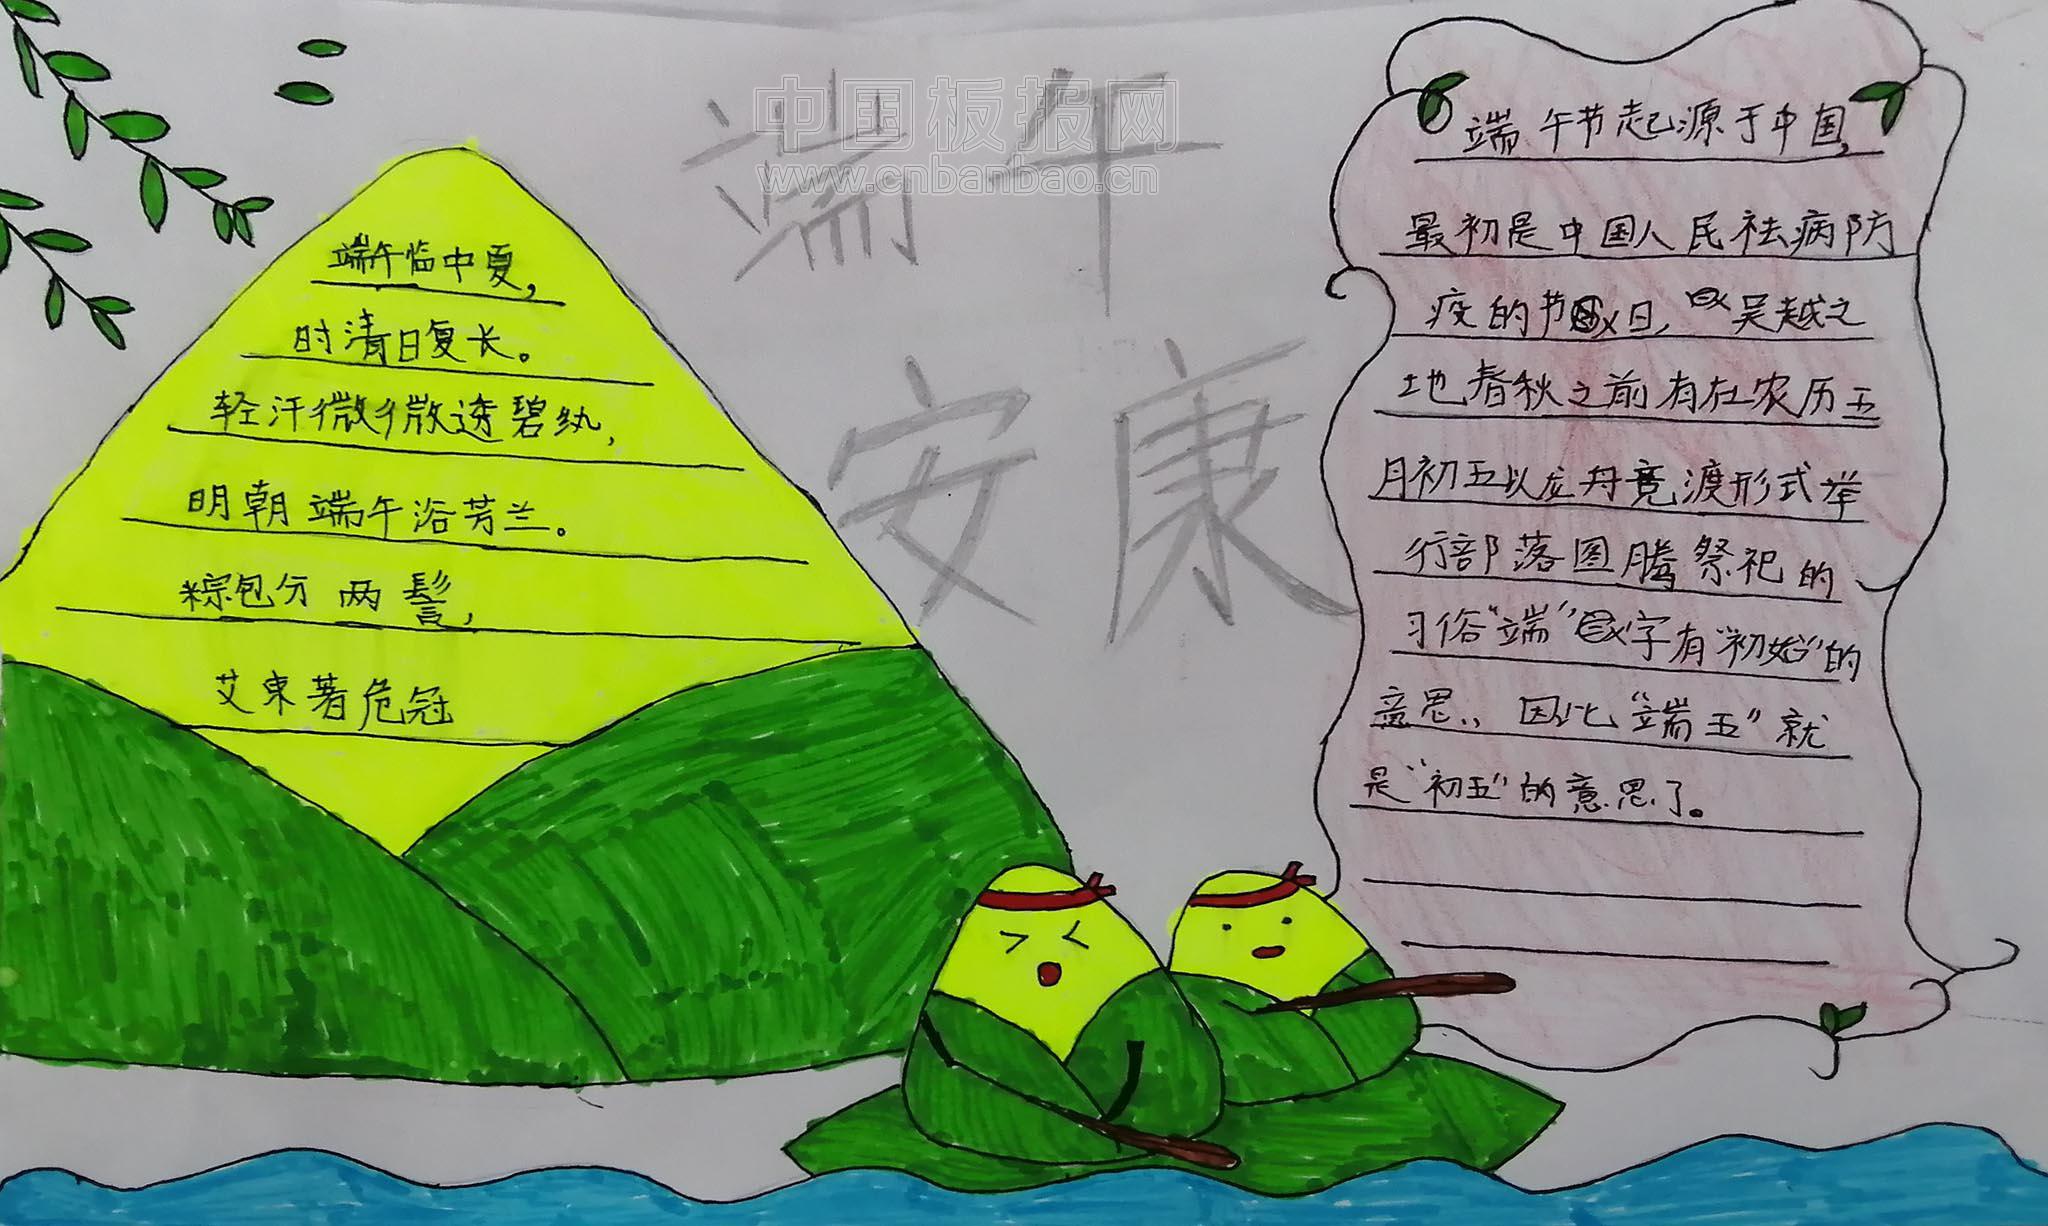 中国板报网
www.cnbanbao.cn
端午
安康
端午临中夏,
时清日复长。
轻汗微微透碧纨,
明朝端午浴芳兰。
粽包分两髻,
艾束著危冠
端午节起源于中国,
最初是中国人民祛病防
疫的节日,吴越之
地春秋之前有在农历五
月初五以龙舟竟渡形式举
行部落图腾祭祀的
习俗"端"字有"初始"的
意思,因此"端五"就
是"初五"的意思了。